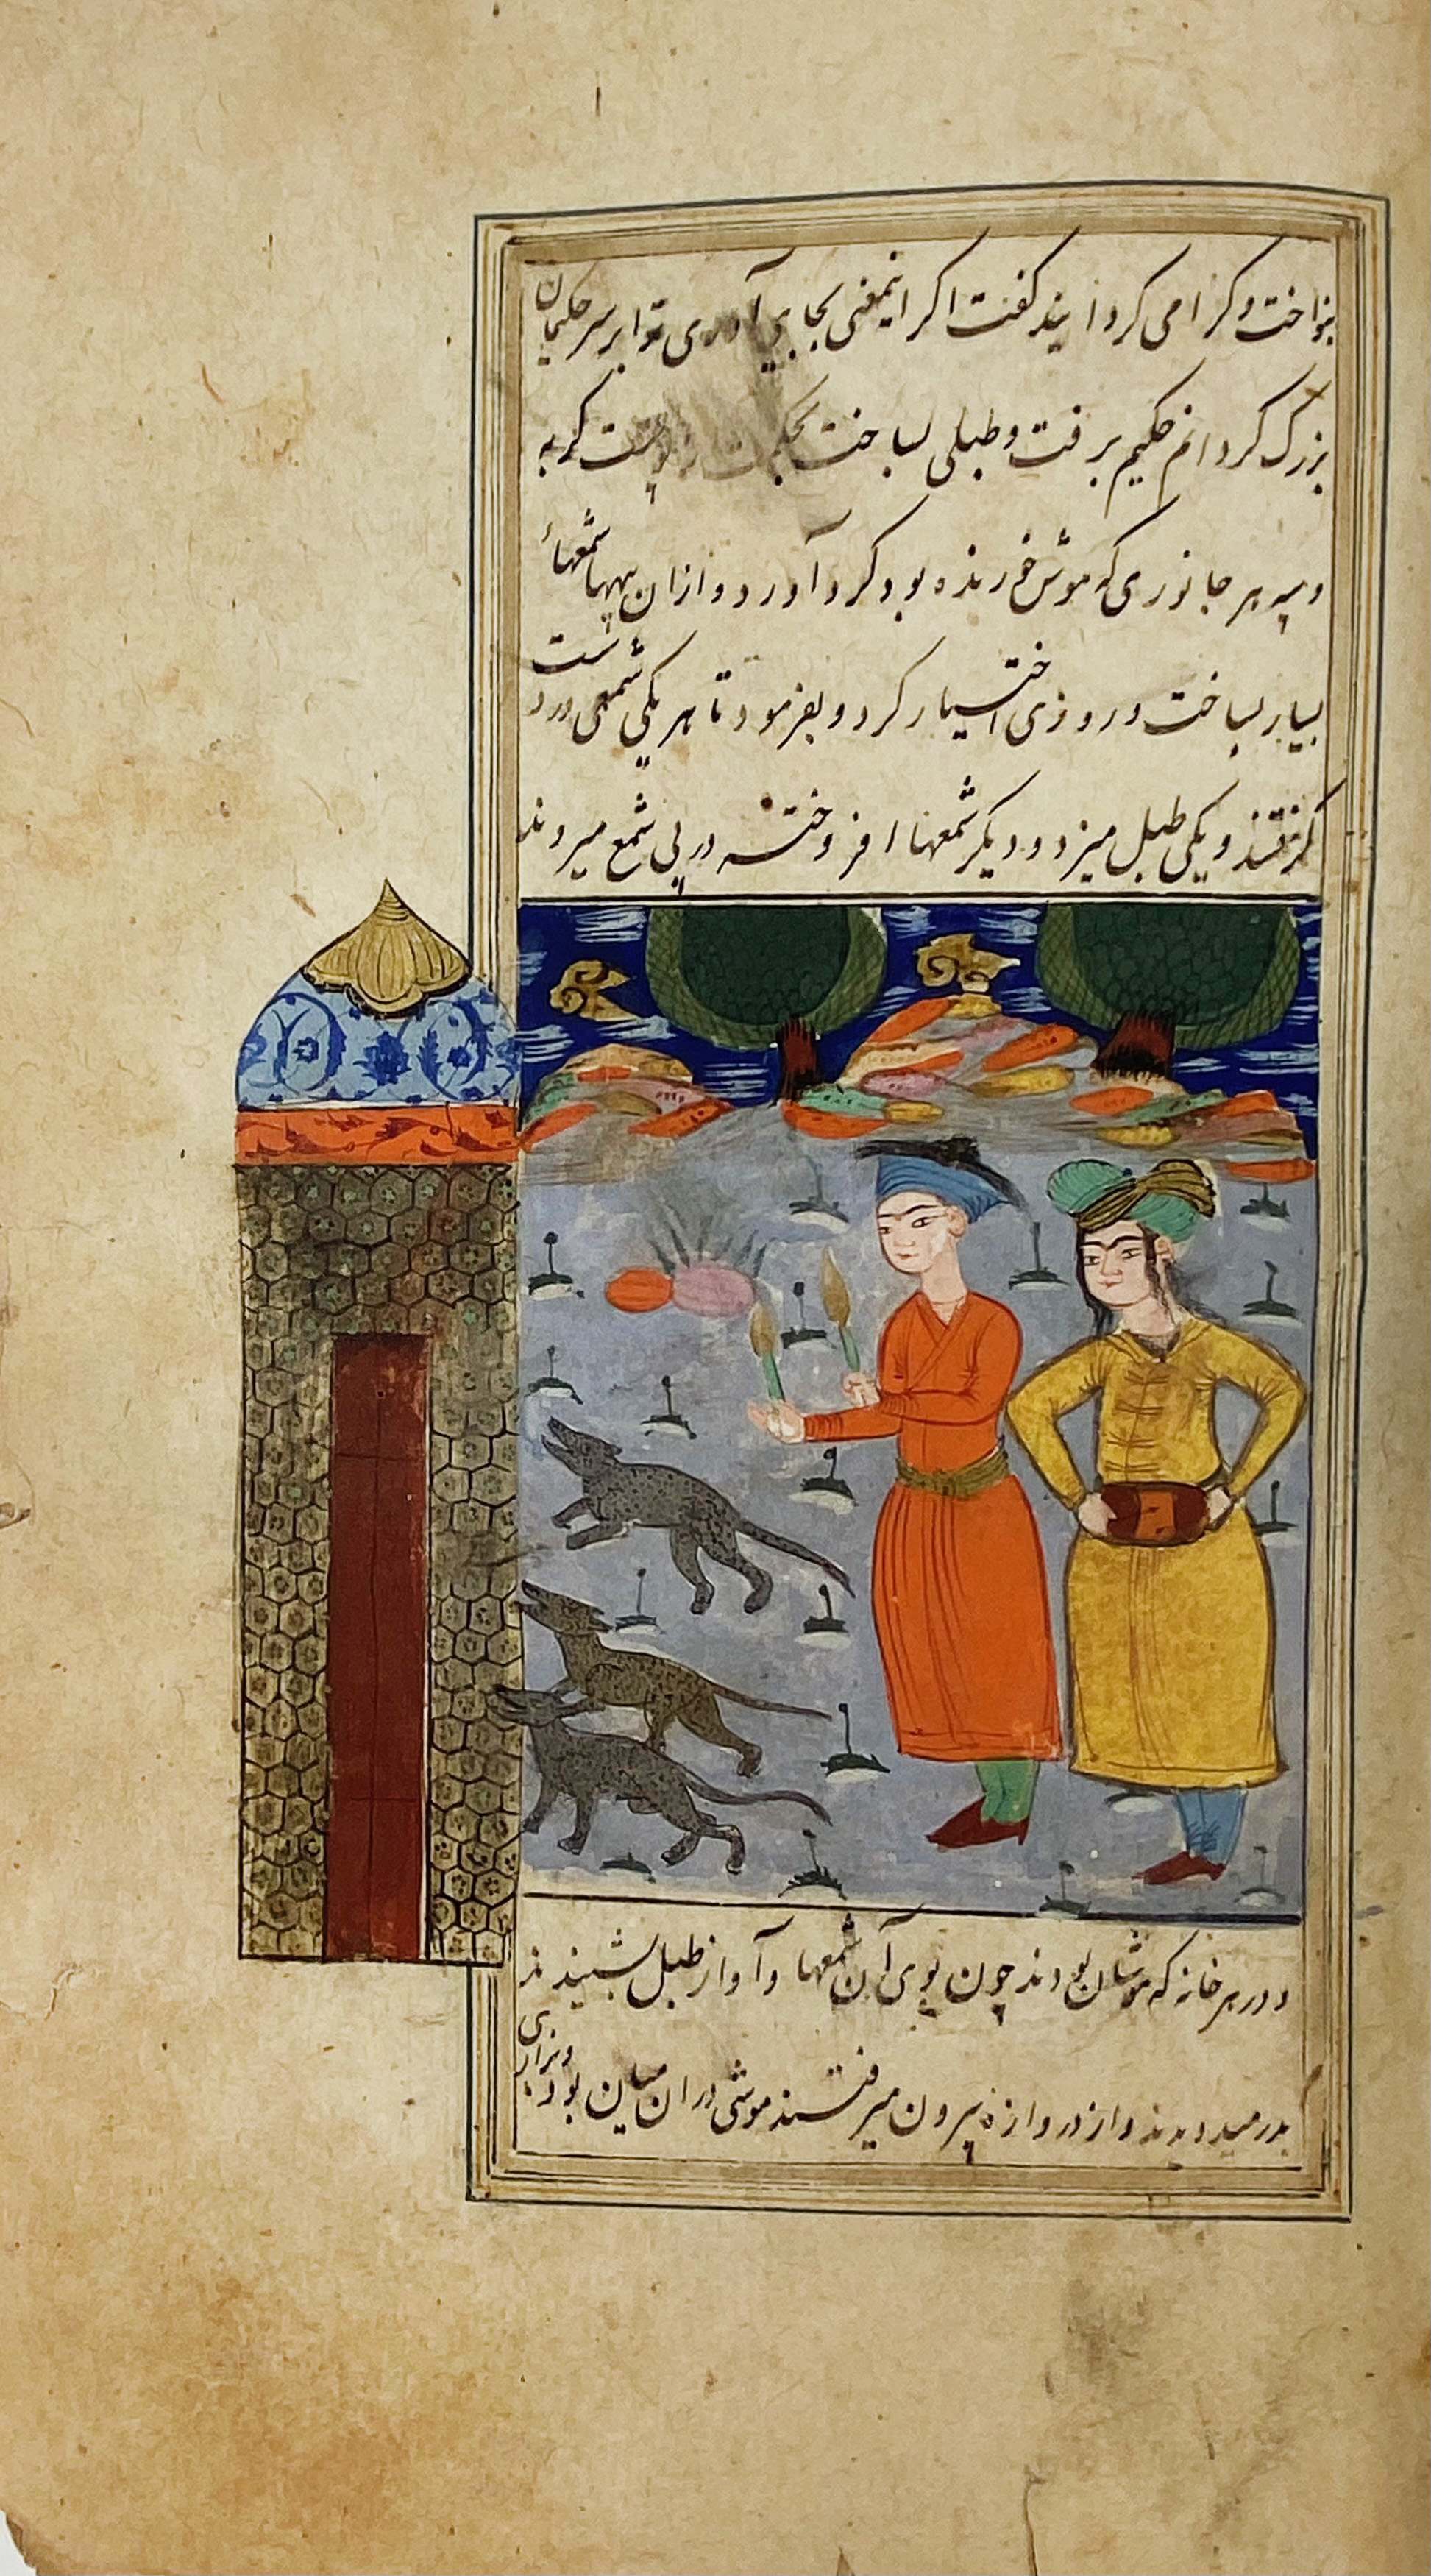 بنواخت و کرامی کردانید کفت اکر اینمعنی بجای آوری ترا بر سر حکیمان
بزرک کردانم حکیم برفت و طبلی بساخت بحکمت از پوست کربه
و پیه هر جانوری که موش خورنده بود کرد آورد و از ان پیهها شمعهاء
بسیار بساخت و روزی اختیار کرد و بفرمود تا هر یکی شمعی در دست
کرفتند و یکی طبل میزد و دیکر شمعها افروخته در پی شمع میروند
و در هر خانه که موشان بودند چون بوی آن شمعها و آواز طبل شنیدند
بدر میدویدند و از دروازه بیرون میرفتند موشی در ان میان بود